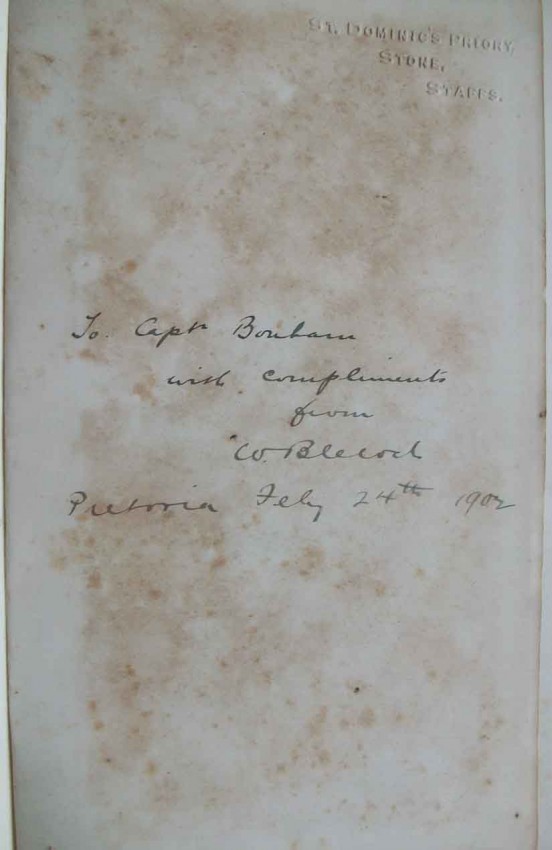 ST. DOMINIC'S PRIORY,
STONE,
STAFFS.
To Captn Bonham
with compliments
from
W.
Pretoria Feby 24th 1902